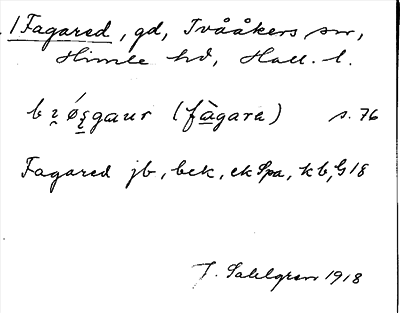 1 Fagared, gd, Tvååkers sn,
Himle hd, Hall. l.
(fàgara) s. 76
Fagared jb, bek, ek Spa, kb, G 18
J. Sahlgren 1918